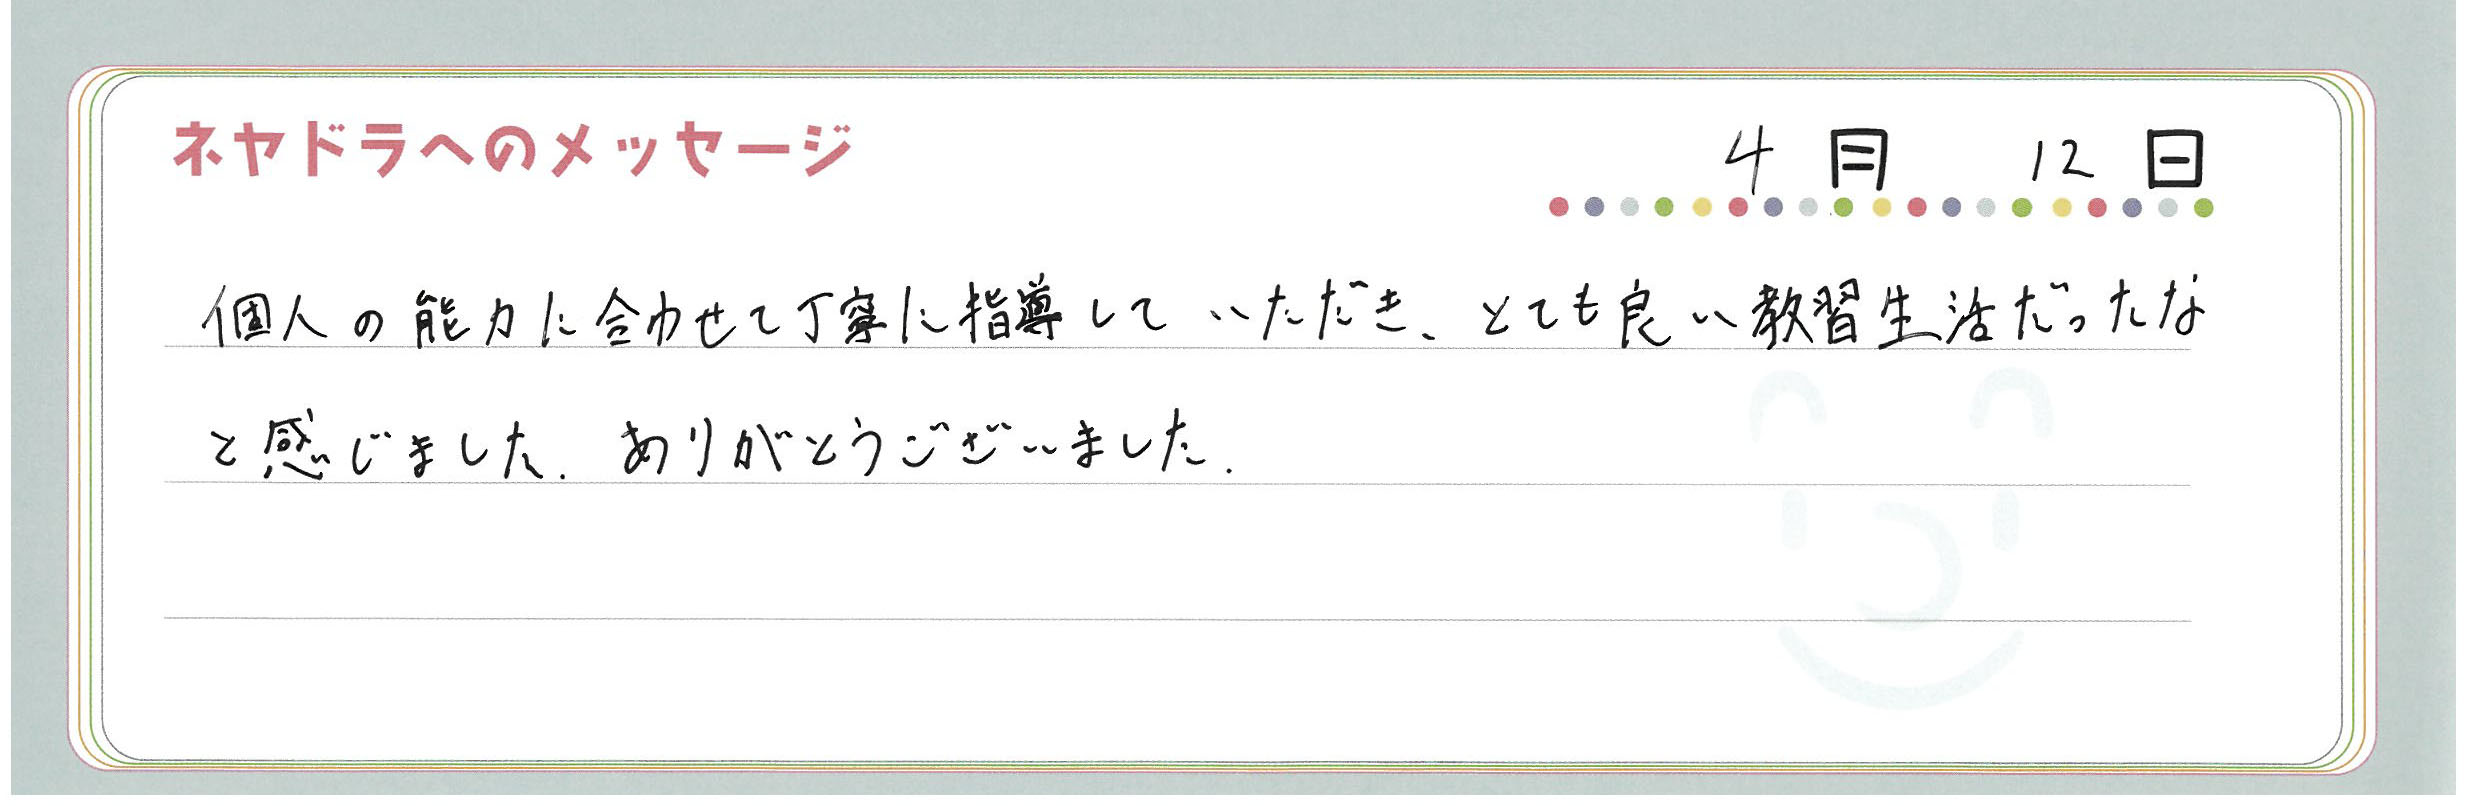 ネヤドラへのメッセージ
4月 12日
個人の能力に合わせて丁寧に指導していただき、とても良い教習生活だったな
と感じました. ありがとうございました.